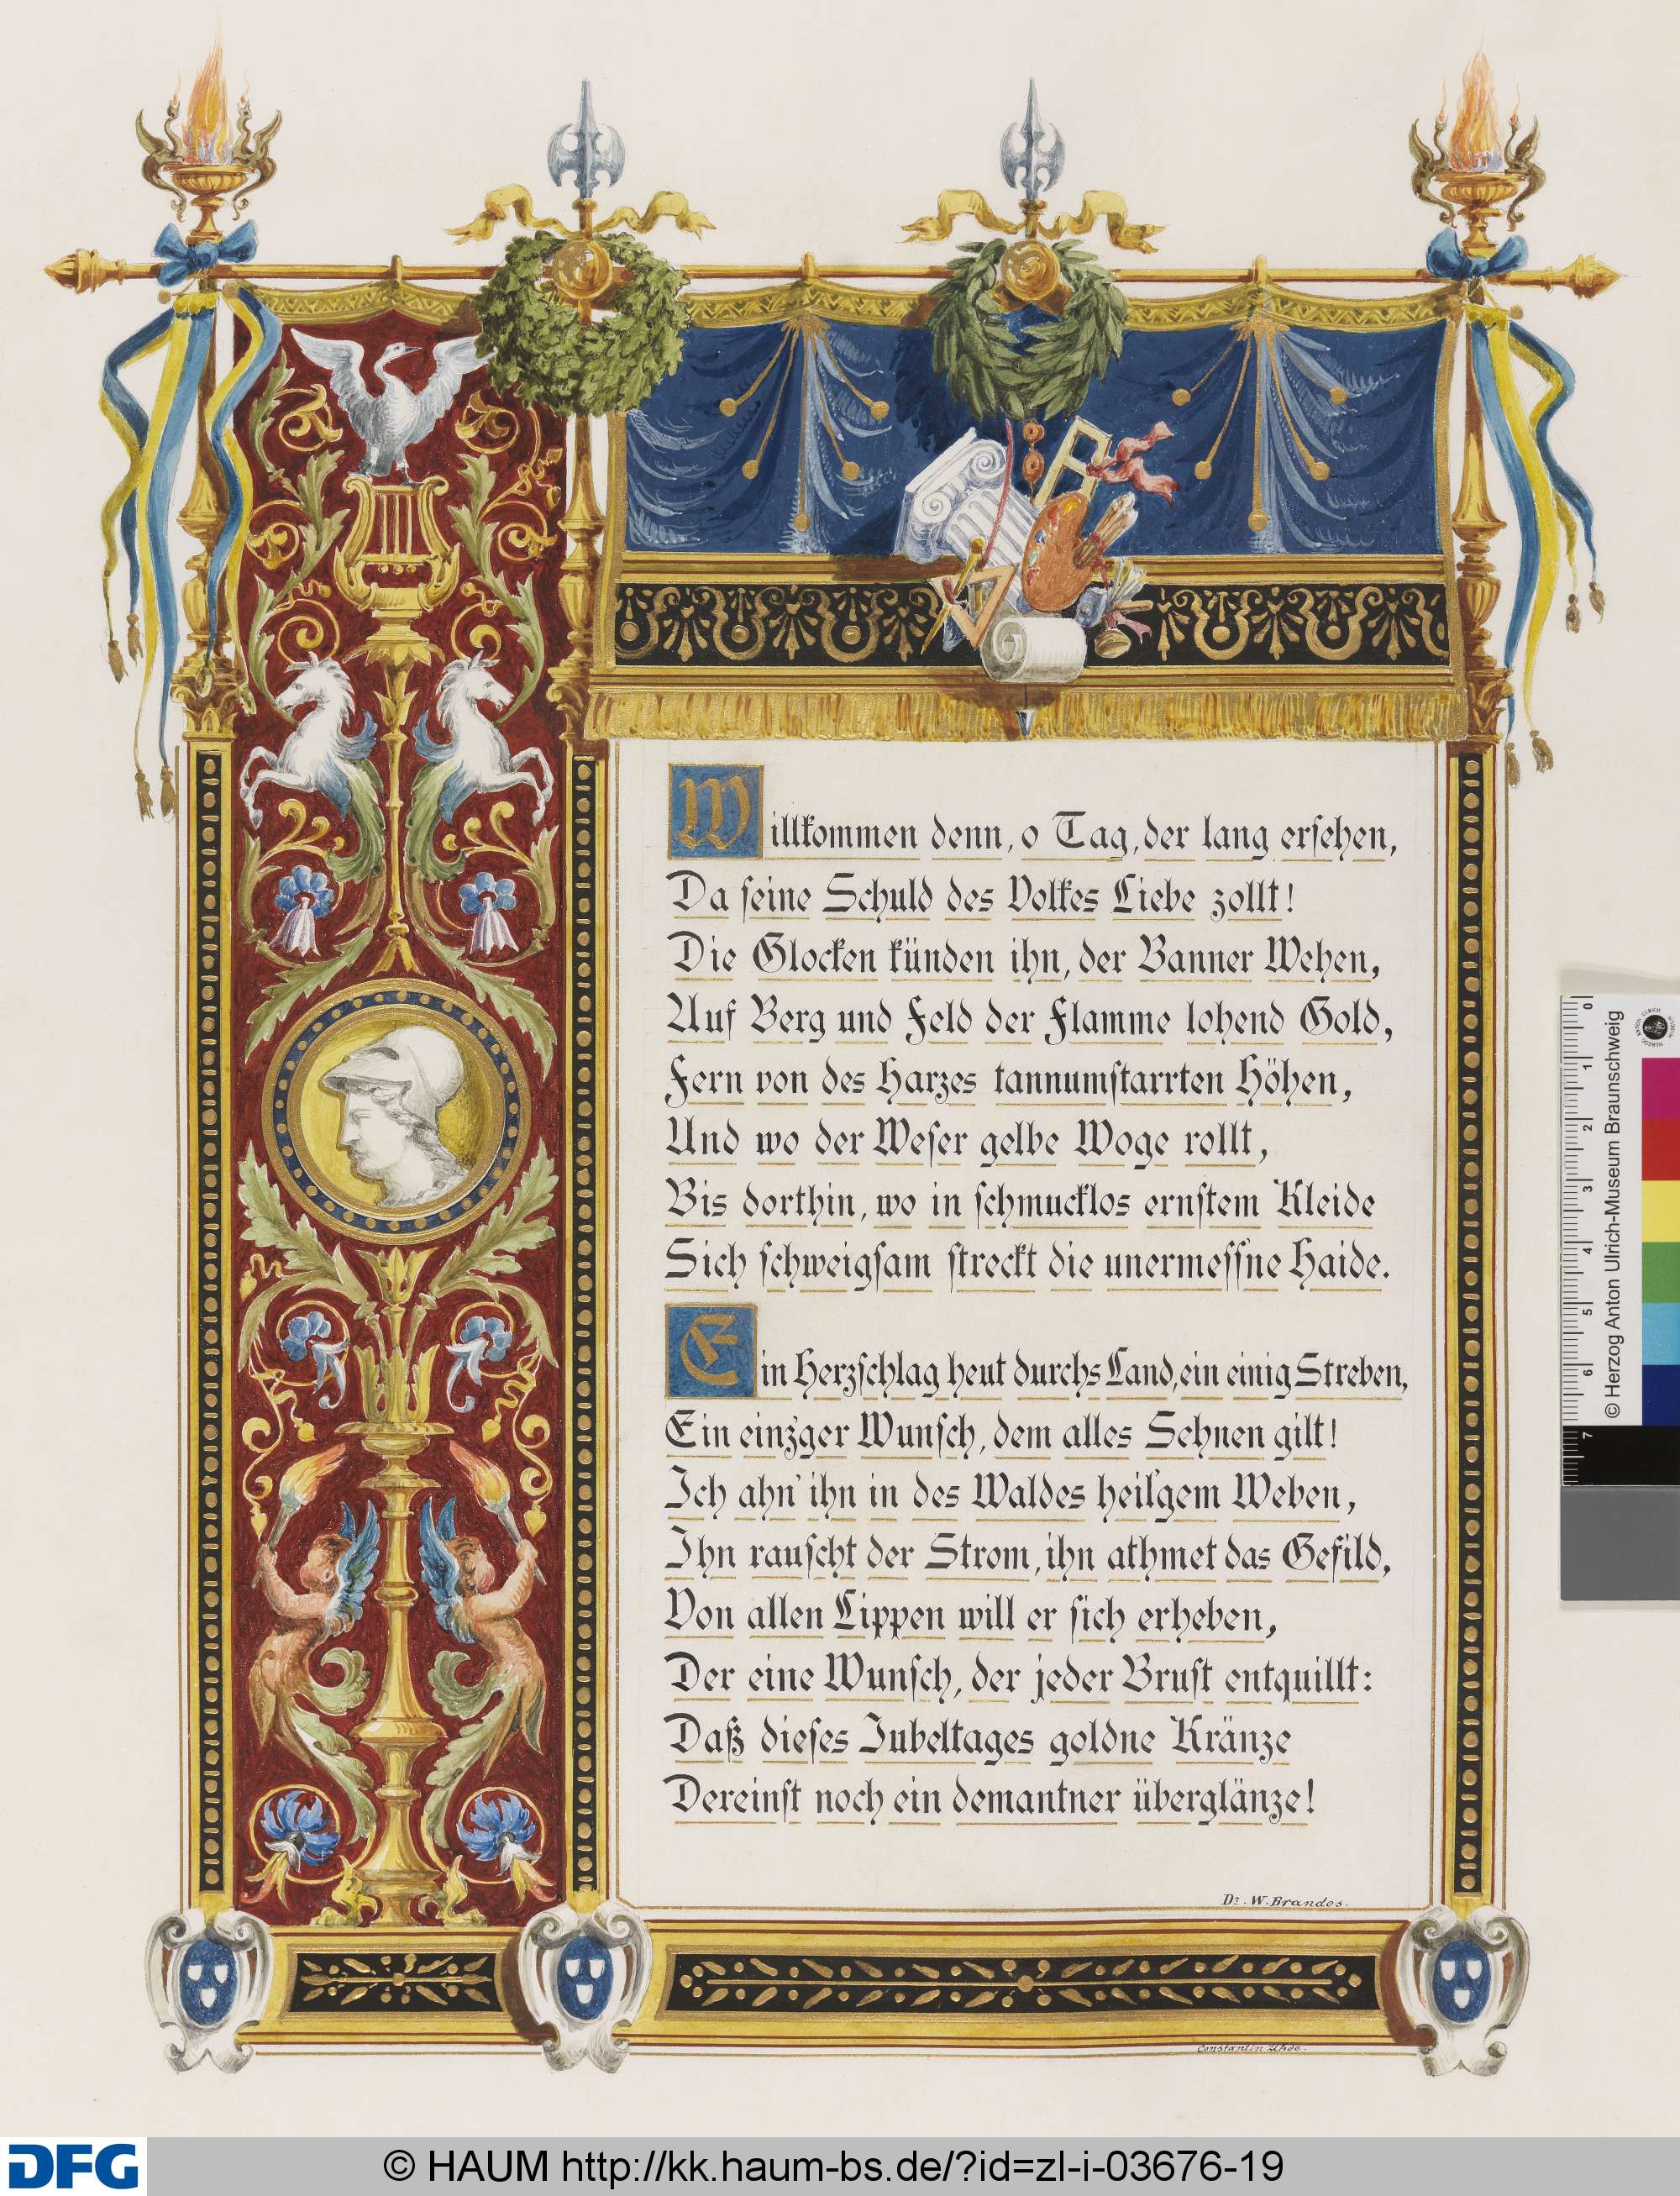 Willkommen denn, o Tag, der lang ersehen,
Da seine Schuld des Volkes Liebe zollt!
Die Glocken künden ihn, der Banner Wehen,
Auf Berg und Feld der Flamme lohend Gold,
Fern von des Harzes tannumstarrten Höhen,
Und wo der Weser gelbe Woge rollt,
Bis dorthin, wo in schmucklos ernstem Kleide
Sich schweigsam streckt die unermess'ne Haide.
Ein Herzschlag heut durchs Land, ein einig Streben,
Ein einz'ger Wunsch, dem alles Sehnen gilt!
Ich ahn' ihn in des Waldes heil'gem Weben,
Ihn rauscht der Strom, ihn athmet das Gefild,
Von allen Lippen will er sich erheben,
Der eine Wunsch, der jeder Brust entquillt:
Daß dieses Jubeltages goldne Kränze
Dereinst noch ein demantner überglänze!
Dr. W. Brandes.
Constantin Uhde.
0 1 2 3 4 5 6 7
© Herzog Anton Ulrich-Museum Braunschweig
DFG
© HAUM http://kk.haum-bs.de/?id=zl-i-03676-19